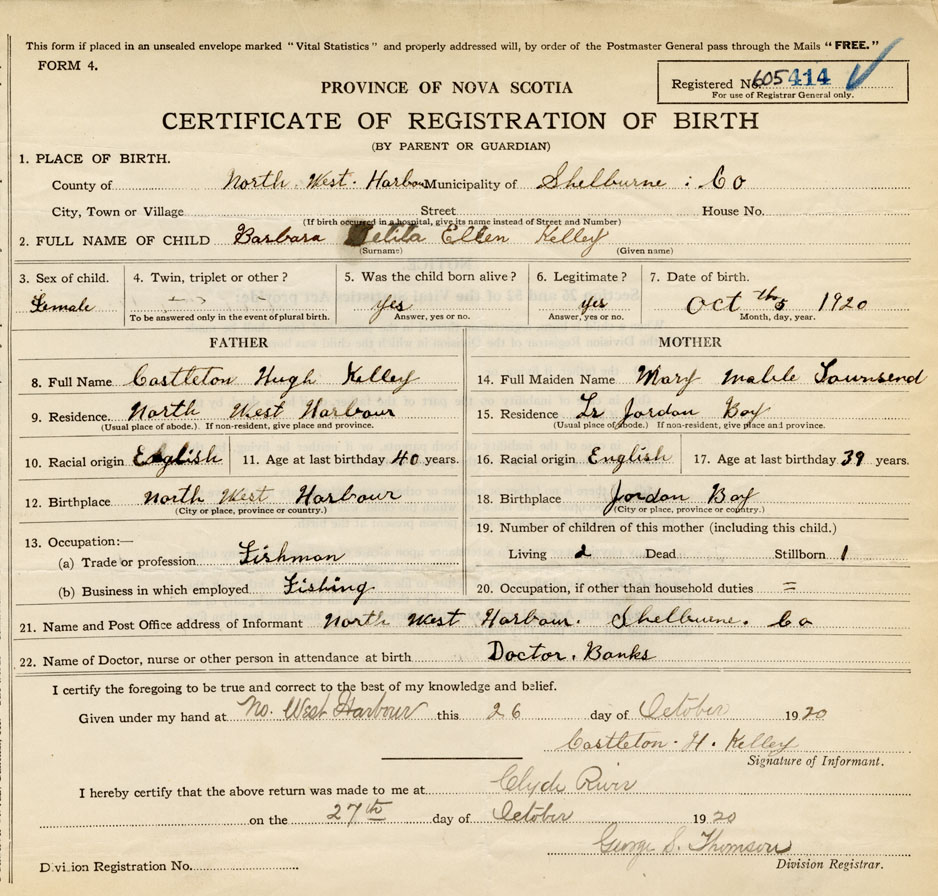 This form if placed in an unsealed envelope marked "Vital Statistics" and properly addressed will, by order of the Postmaster General pass through the Mails "FREE."
FORM 4.
Registered No. 605414
For use of Registrar General only.
PROVINCE OF NOVA SCOTIA
CERTIFICATE OF REGISTRATION OF BIRTH
(BY PARENT OR GUARDIAN)
1. PLACE OF BIRTH.
County of North West Harbour Municipality of Shelburne Co
City, Town or Village Street House No.
(If birth occurred in a hospital, give its name instead of Street and Number)
2. FULL NAME OF CHILD Barbara Ellen Kelley
(Surname) (Given name)
3. Sex of child. 4. Twin, triplet or other? 5. Was the child born alive? 6. Legitimate? 7. Date of birth.
Female yes yes Oct th 5 1920
To be answered only in the event of plural birth. Answer, yes or no. Answer, yes or no. Month, day, year.
FATHER MOTHER
8. Full Name Castleton Hugh Kelley 14. Full Maiden Name Mary Mable Townsend
9. Residence. North West Harbour 15. Residence Lr Jordan Bay
(Usual place of abode.) If non-resident, give place and province. (Usual place of abode.) If non-resident, give place and province.
10. Racial origin English 11. Age at last birthday 40 years. 16. Racial origin English 17. Age at last birthday 39 years.
12. Birthplace North West Harbour 18. Birthplace Jordan Bay
(City or place, province or country.) (City or place, province or country.)
19. Number of children of this mother (including this child.)
13. Occupation:—
(a) Trade or profession Fishman Living 2 Dead Stillborn 1
(b) Business in which employed Fishing 20. Occupation, if other than household duties =
21. Name and Post Office address of Informant North West Harbour. Shelburne. Co
22. Name of Doctor, nurse or other person in attendance at birth Doctor. Banks
I certify the foregoing to be true and correct to the best of my knowledge and belief.
Given under my hand at No. West Harbour this 26 day of October 1920
Castleton. H. Kelley
Signature of Informant.
I hereby certify that the above return was made to me at Clyde River
on the 27th day of October 1920
George S. Thomson
Division Registrar.
Division Registration No.